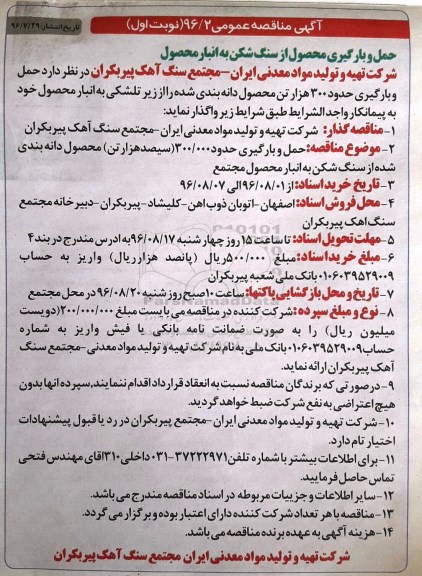 آگهی مناقصه عمومی ۹۶/۲ (نوبت اول)
تاریخ انتشار: ۹۶/۷/۲۹
حمل و بارگیری محصول از سنگ شکن به انبار محصول
شرکت تهیه و تولید مواد معدنی ایران - مجتمع سنگ آهک پیربکران در نظر دارد حمل
و بارگیری حدود ۳۰۰ هزار تن محصول دانه بندی شده را از زیر تلشکی به انبار محصول خود
به پیمانکار واجد الشرایط طبق شرایط زیر واگذار نماید:
۱- مناقصه گذار: شرکت تهیه و تولید مواد معدنی ایران - مجتمع سنگ آهک پیربکران
۲- موضوع مناقصه: حمل و بارگیری حدود ۳۰۰/۰۰۰ (سیصد هزار تن) محصول دانه بندی
شده از سنگ شکن به انبار محصول مجتمع
۳- تاریخ خرید اسناد: از ۹۶/۰۸/۰۱ الی ۹۶/۰۸/۰۷
۴- محل فروش اسناد: اصفهان - اتوبان ذوب آهن - کلیشاد - پیربکران - دبیرخانه مجتمع
سنگ اهک پیربکران
۵- مهلت تحویل اسناد: تا ساعت ۱۵ روز چهارشنبه ۹۶/۰۸/۱۷ به ادرس مندرج در بند ۴
۶- مبلغ خرید اسناد: مبلغ ۵۰۰/۰۰۰ ریال (پانصد هزار ریال) واریز به حساب
۰۱۰۶۰۳۹۵۲۹۰۰۹ بانک ملی شعبه پیربکران
۷- تاریخ و محل بازگشایی پاکتها: ساعت ۱۰ صبح روز شنبه ۹۶/۰۸/۲۰ در محل مجتمع
۸- نوع و مبلغ سپرده: شرکت کننده در مناقصه می بایست مبلغ ۲۰۰/۰۰۰/۰۰۰ (دویست
میلیون ریال) را به صورت ضمانت نامه بانکی یا فیش واریز به شماره
حساب ۰۱۰۶۰۳۹۵۲۹۰۰۹ بانک ملی به نام شرکت تهیه و تولید مواد معدنی - مجتمع سنگ
آهک پیربکران ارائه نماید.
۹- در صورتی که برندگان مناقصه نسبت به انعقاد قرارداد اقدام ننمایند، سپرده انها بدون
هیچ اعتراضی به نفع شرکت ضبط خواهد گردید.
۱۰- شرکت تهیه و تولید مواد معدنی ایران - مجتمع پیربکران در رد یا قبول پیشنهادات
اختیار تام دارد.
۱۱- برای اطلاعات بیشتر با شماره تلفن ۳۷۲۲۲۹۷۱-۰۳۱ داخلی ۳۱۰ اقای مهندس فتحی
تماس حاصل فرمایید.
۱۲- سایر اطلاعات و جزییات مربوطه در اسناد مناقصه مندرج می باشد.
۱۳- مناقصه با هر تعداد شرکت کننده دارای اعتبار بوده و برگزار می گردد.
۱۴- هزینه آگهی به عهده برنده مناقصه می باشد.
شرکت تهیه و تولید مواد معدنی ایران مجتمع سنگ آهک پیربکران